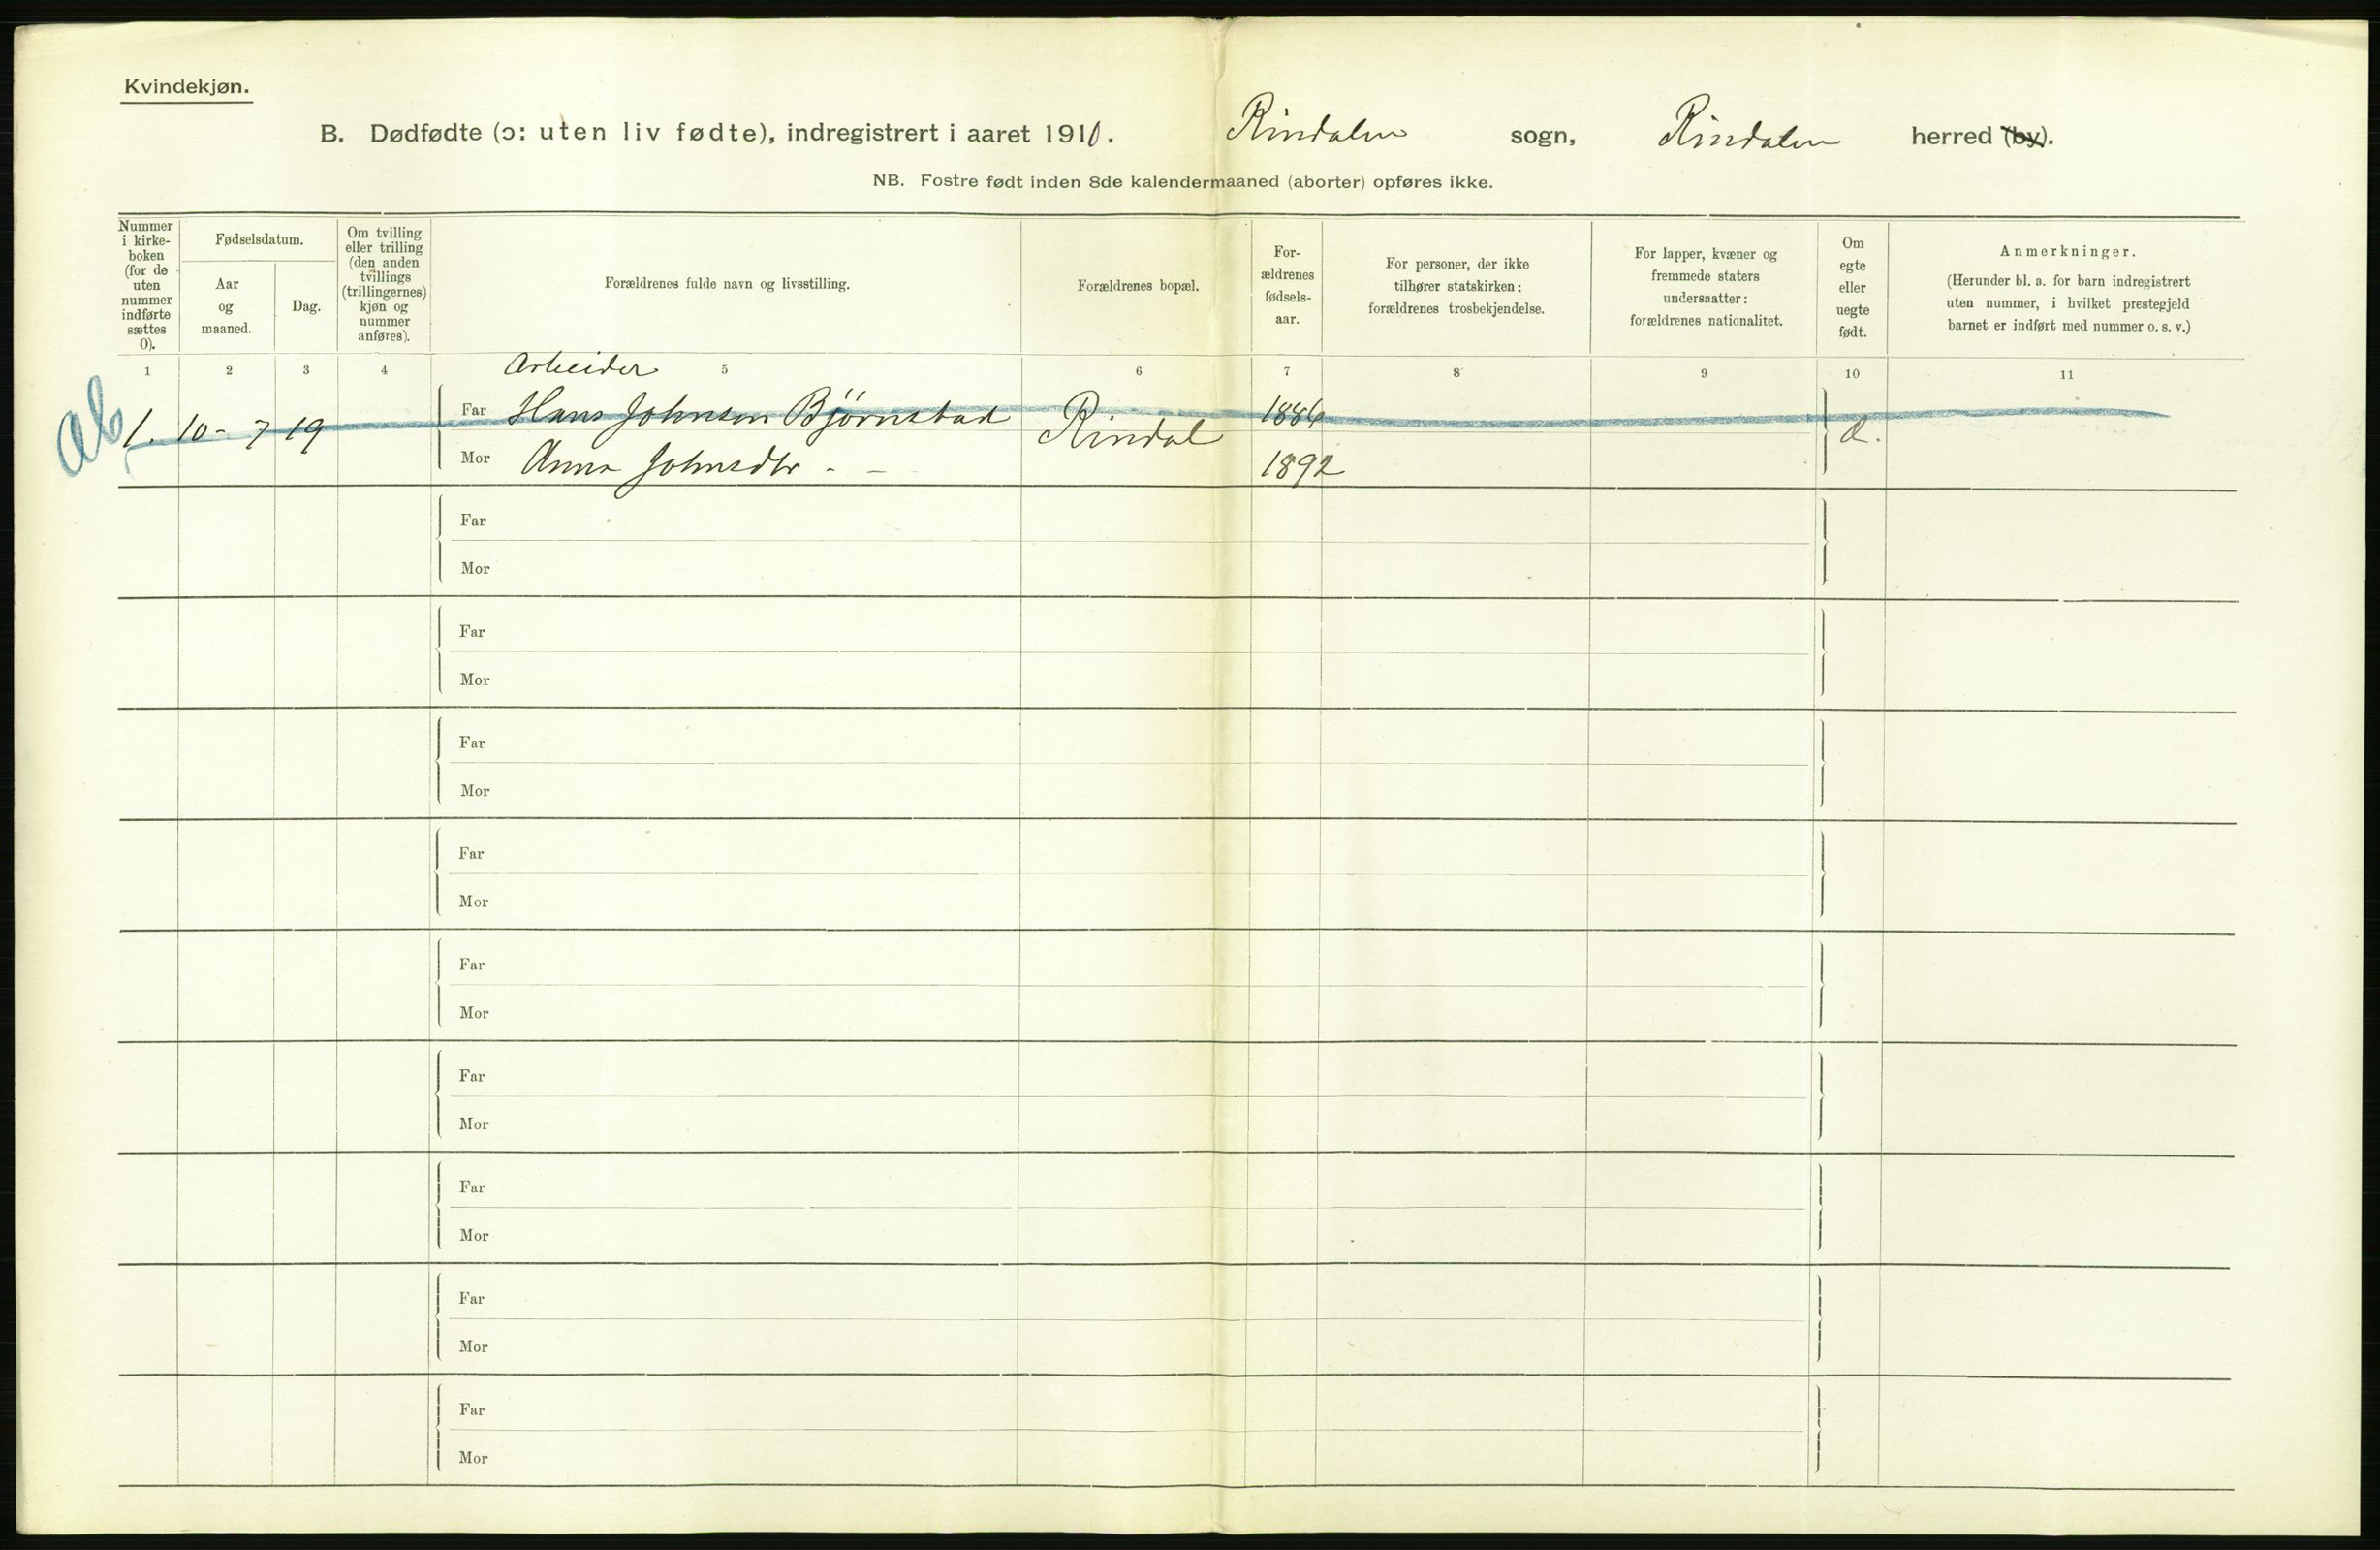 Kvindekjøn.
B. Dødfødte (ɔ: uten liv fødte), indregistrert i aaret 1910. Rindalen sogn, Rindalen herred (by).
NB. Fostre født inden 8de kalendermaaned (aborter) opføres ikke.
Nummer
i kirke-
boken
(for de
uten
nummer
indførte
sættes
0).
Fødselsdatum.
Aar
og
maaned.
Dag.
Om tvilling
eller trilling
(den anden
tvillings
(trillingernes)
kjøn og
nummer
anføres).
Forældrenes fulde navn og livsstilling.
Forældrenes bopæl.
For-
ældrenes
fødsels-
aar.
For personer, der ikke
tilhører statskirken:
forældrenes trosbekjendelse.
For lapper, kvæner og
fremmede staters
undersaatter:
forældrenes nationalitet.
Om
egte
eller
uegte
født.
Anmerkninger.
(Herunder bl. a. for barn indregistrert
uten nummer, i hvilket prestegjeld
barnet er indført med nummer o. s. v.)
1 2 3 4 5 6 7 8 9 10 11
Arbeider
Ab 1. 10 - 7 19 Far Hans Johnsen Bjørnstad Rindal 1886 æ.
Mor Anna Johnsdtr - - 1892
Far
Mor
Far
Mor
Far
Mor
Far
Mor
Far
Mor
Far
Mor
Far
Mor
Far
Mor
Far
Mor